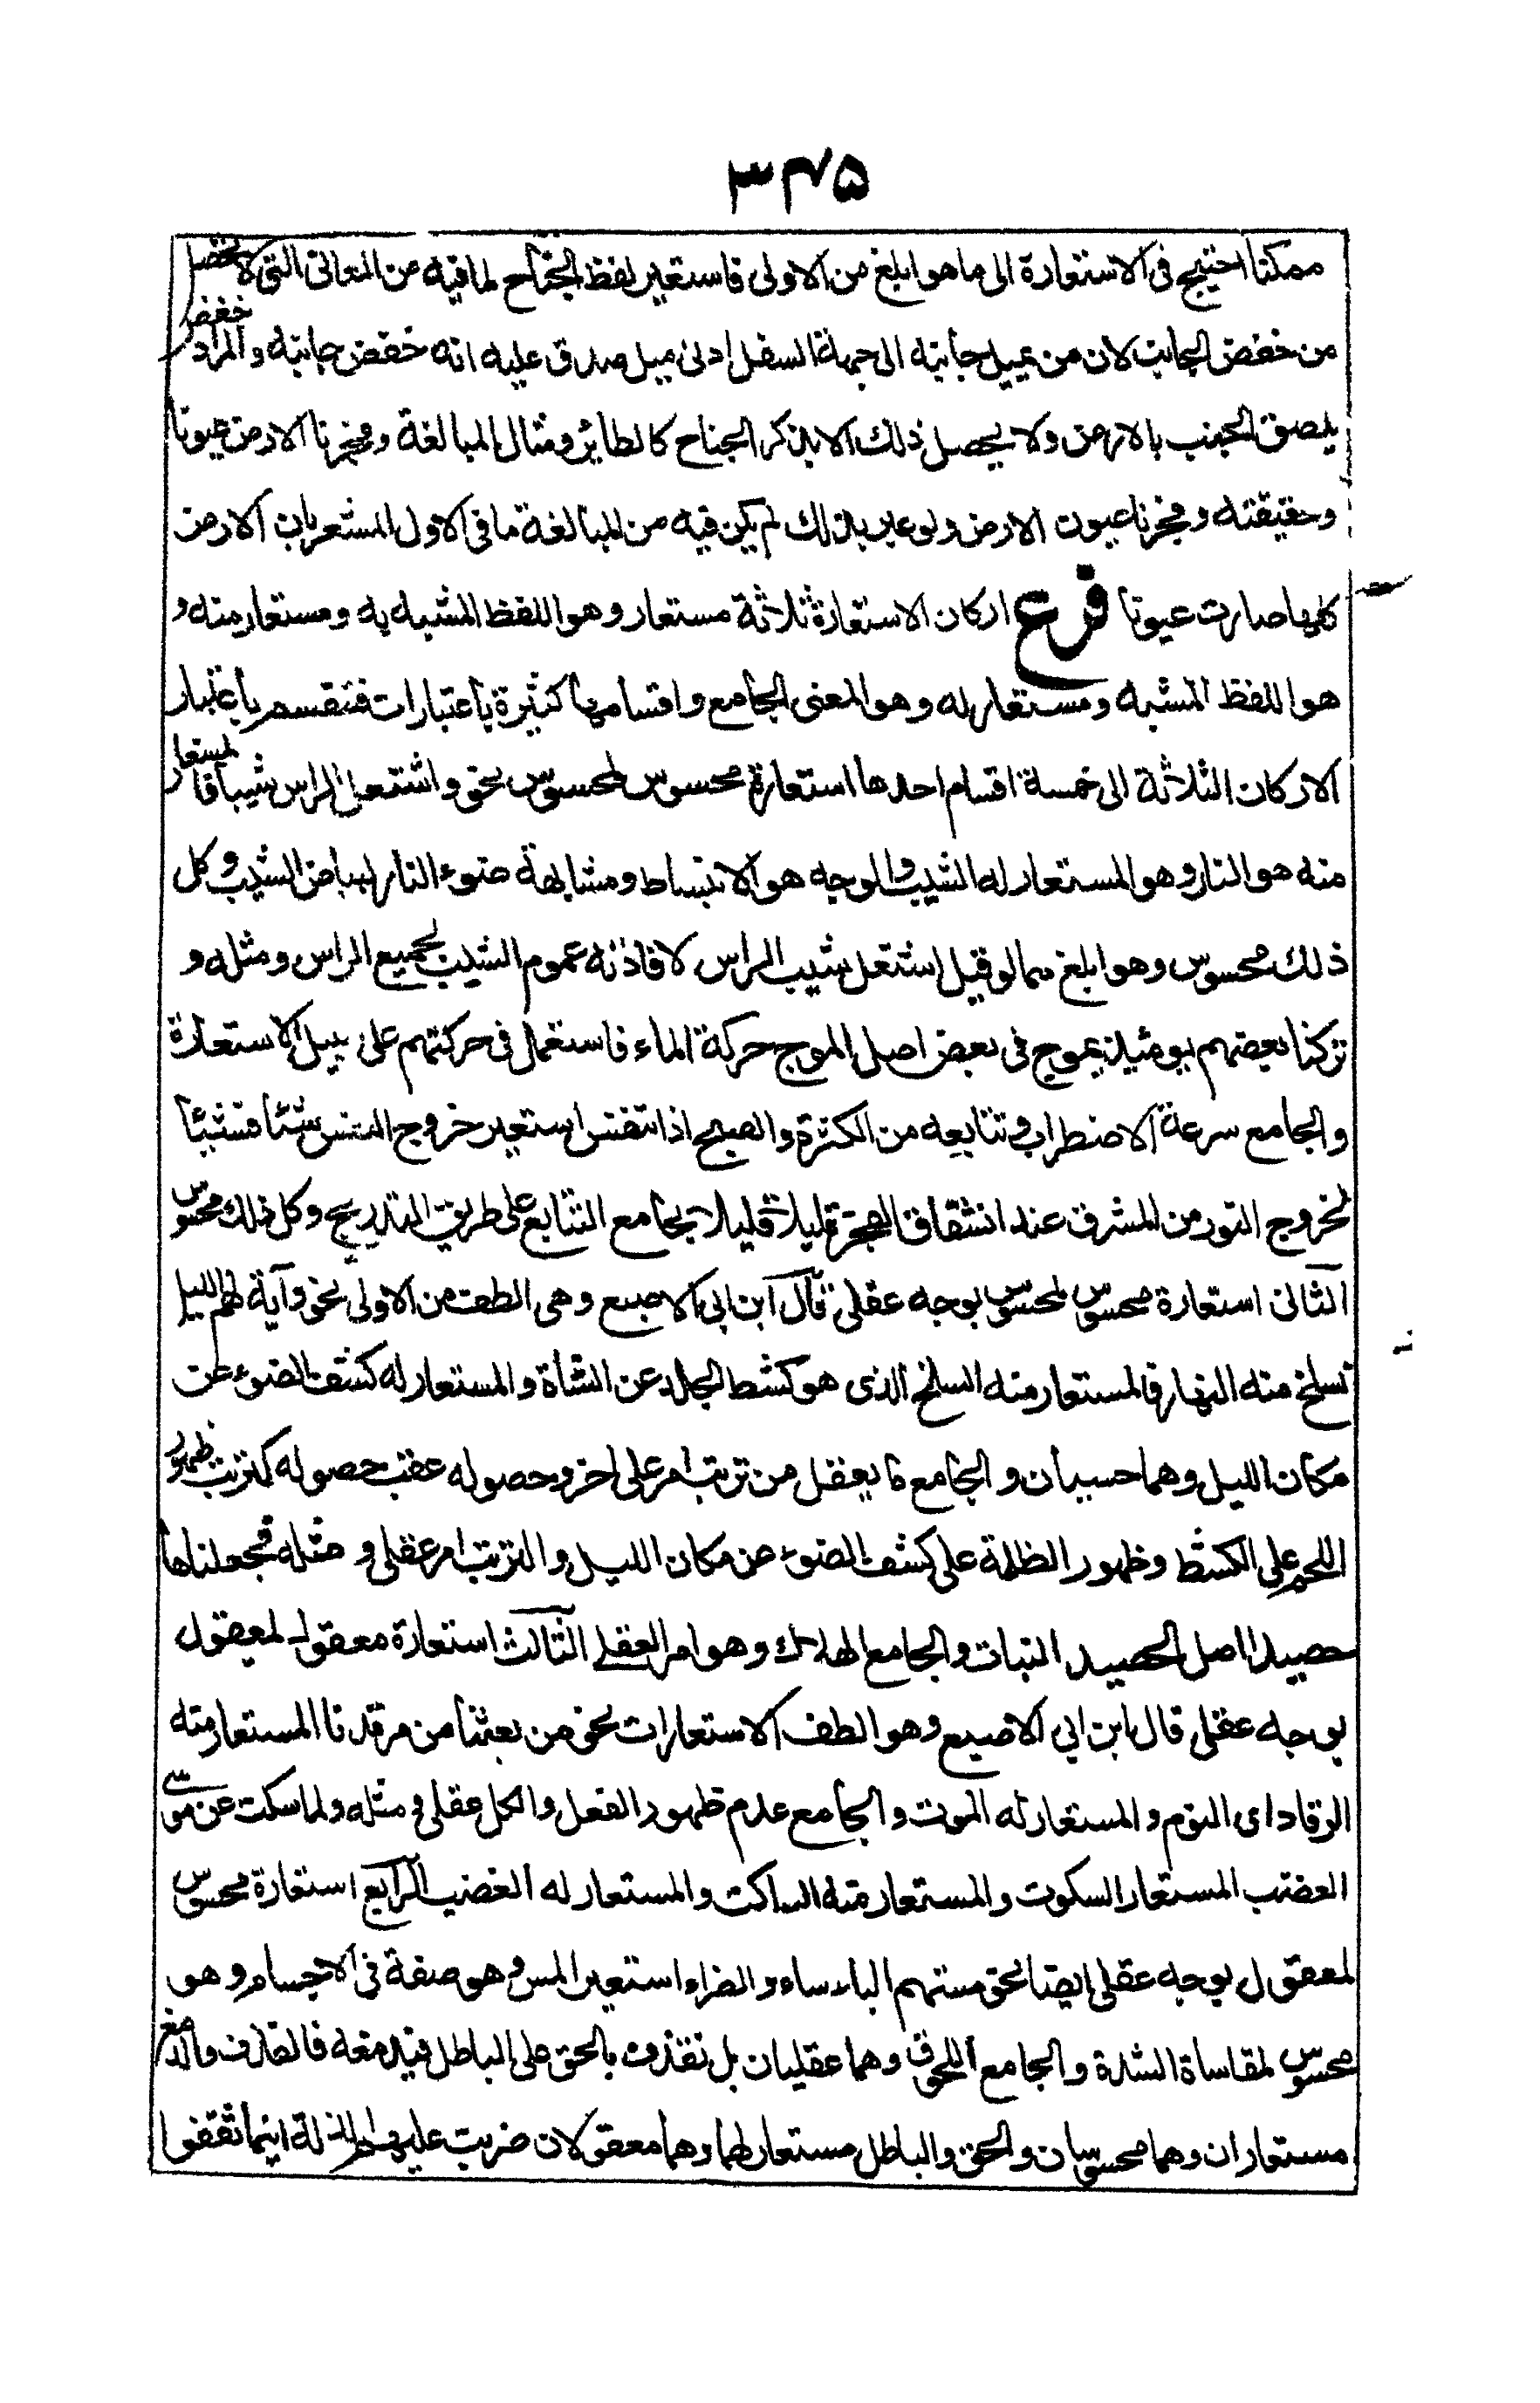 ٣٤٥
ممكنا احتيج فى الاستعارة الى ما هو ابلغ من الاولى فاستعير لفظ الجناح لما فيه من المعانى التى لا تحصل
من خفض الجانب لان من يميل جانبه الى جهة السفل ادنى ميل صدق عليه انه خفض جانبه والمراد خفض
يلصق الجنب بالارض ولا يحصل ذلك الا بذكر الجناح كالطائر ومثال المبالغة وفجرنا الارض عيونا
وحقيقته وفجرنا عيون الارض ولو عبر بذلك لم يكن فيه من المبالغة ما فى الاول المشعر بان الارض
كلها صارت عيونا فرع اركان الاستعارة ثلاثة مستعار وهو اللفظ المشبه به ومستعار منه و
هو اللفظ المشبه ومستعار له وهو المعنى الجامع واقسامها كثيرة باعتبارات فتنقسم باعتبار
الاركان الثلاثة الى خمسة اقسام احدها استعارة محسوس لمحسوس نحو واشتعل الراس شيبا فالمستعار
منه هو النار وهو المستعار له الشيب والوجه هو الانبساط ومشابهة ضوء النار لبياض الشيب وكل
ذلك محسوس وهو ابلغ مما لو قيل اشتعل شيب الراس لافادته عموم الشيب لجميع الراس ومثله و
تركنا بعضهم يومئذ يموج فى بعض اصل الموج حركة الماء فاستعمل فى حركتهم على سبيل الاستعارة
والجامع سرعة الاضطراب وتتابعه من الكثرة والصبح اذا تنفس استعير خروج النفس شيئا فشيئا
لخروج النور من المشرق عند انشقاق الفجر قليلا قليلا بجامع التتابع على طريق التدريج وكل ذلك محسوس
الثانى استعارة محسوس لمحسوس بوجه عقلى قال ابن ابى الاصبع وهى الطف من الاولى نحو وآية لهم الليل
نسلخ منه النهار فالمستعار منه السلخ الذى هو كشط الجلد عن الشاة والمستعار له كشف الضوء عن
مكان الليل وهما حسيان والجامع ما يعقل من ترتب امر على اخر وحصوله عقب حصوله كترتب ظهور
اللحم على الكشط وظهور الظلمة على كشف الضوء عن مكان الليل والترتب امر عقلى و مثله فجعلناها
حصيدا اصل الحصيد النبات والجامع الهلاك وهو امر العقلى الثالث استعارة معقول لمعقول
بوجه عقلى قال ابن ابى الاصبع وهو الطف الاستعارات نحو من بعثنا من مرقدنا المستعار منه
الرقاد اى النوم والمستعار له الموت والجامع عدم ظهور الفعل والكل عقلى ومثله ولما سكت عن موسى
الغضب المستعار السكوت والمستعار منه الساكت والمستعار له الغضب الرابع استعارة محسوس
لمعقول بوجه عقلى ايضا نحو مستهم الباساء والضراء استعير المس وهو صفة فى الاجسام وهو
محسوس لمقاساة الشدة والجامع اللحوق وهما عقليان بل نقذف بالحق على الباطل فيدمغه فالقذف والدمغ
مستعاران وهما محسوسان والحق والباطل مستعار لهما وهما معقولان ضربت عليهم الذلة اينما ثقفوا